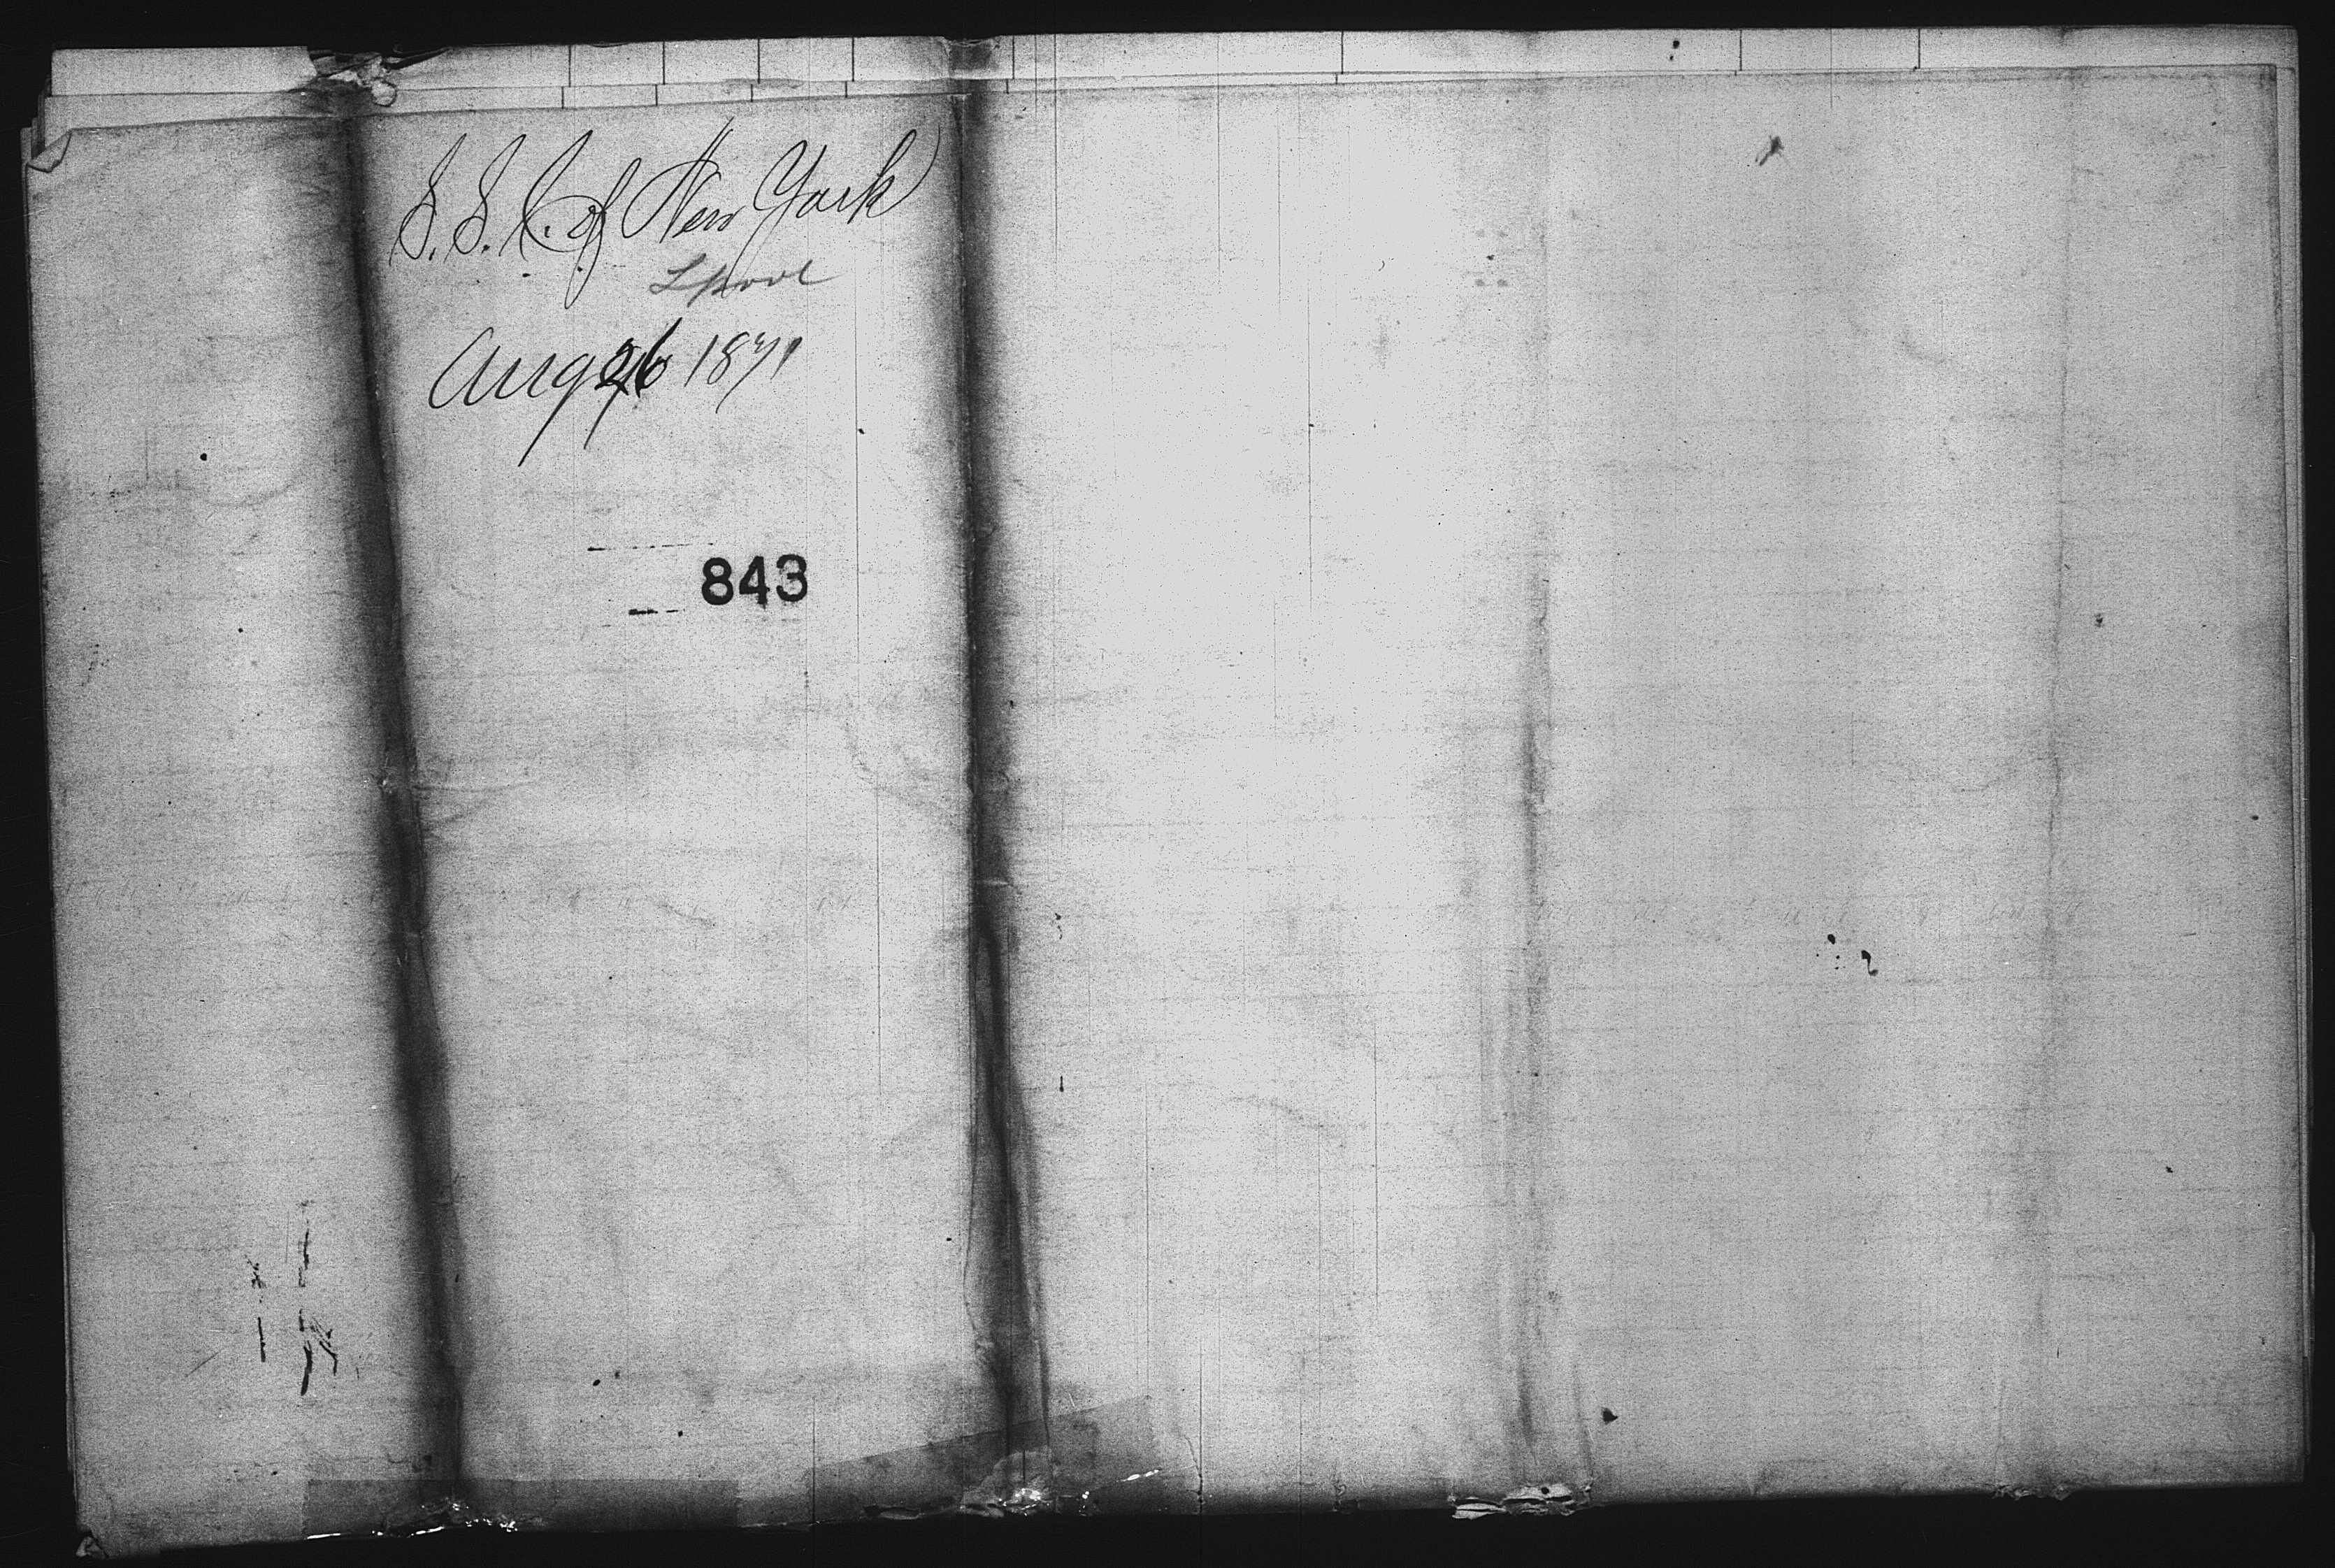 S.S. C. of New York
Lpool
Aug 26 1871
843